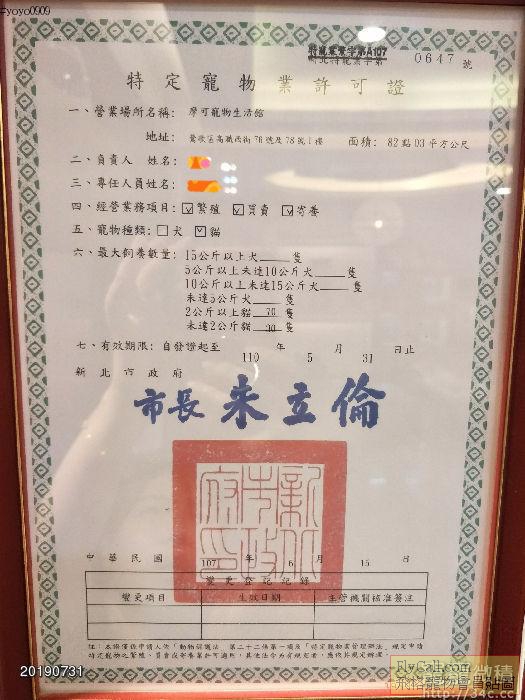 #yoyo0909
特寵業業字第A107
新北特寵業字第 0647 號
特定寵物業許可證
一、營業場所名稱: 摩可寵物生活館
地址: 鶯歌區高職西街76號及78號1樓 面積: 82點03平方公尺
二、負責人 姓名:
三、專任人員姓名:
四、經營業務項目: ☑繁殖 ☑買賣 ☑寄養
五、寵物種類: ☐犬 ☑貓
六、最大飼養數量: 15公斤以上犬____隻
5公斤以上未達10公斤犬____隻
10公斤以上未達15公斤犬____隻
未達5公斤犬____隻
2公斤以上貓 70 隻
未達2公斤貓 30 隻
七、有效期限: 自發證起至 110 年 5 月 31 日止
新北市政府
市長 朱立倫
新北市政府印
中華民國 107 年 6 月 15 日
變更登記記錄
變更項目 生效日期 主管機關核准簽注
註:本證僅依申請人依「動物保護法」第二十二條第一項及「特定寵物業管理辦法」規定申請
特定寵物之繁殖、買賣或寄養業許可適用,其他法令另有規定者,應依其規定辦理。
20190731
FlyCall.com